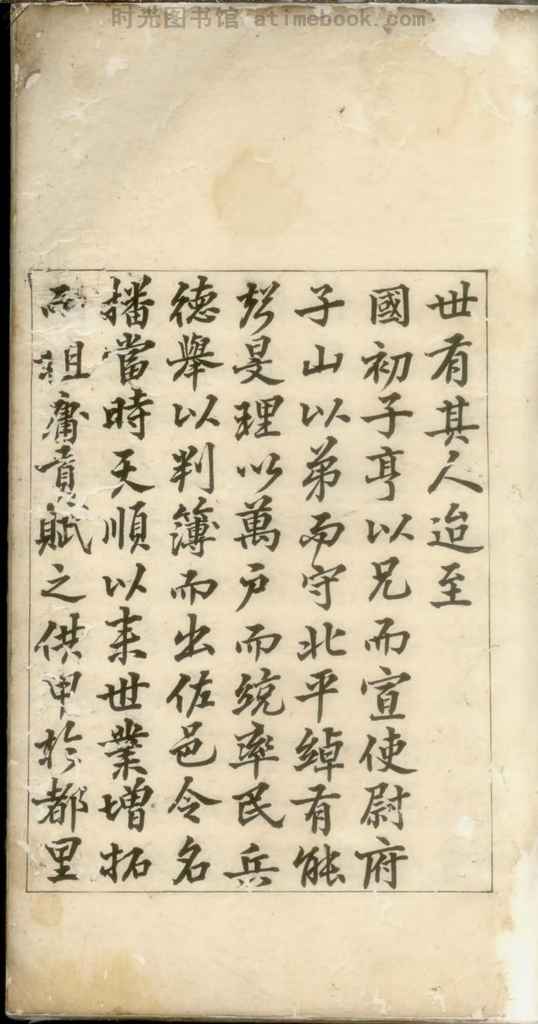 时光图书馆 atimebook.com
世有其人迨至
國初子亨以兄而宣使尉府
子山以弟而守北平綽有能
旻理以萬户而統率民兵
德舉以判簿而出佐邑令名
播當時天順以来世業增拓
租庸貢賦之供甲於都里